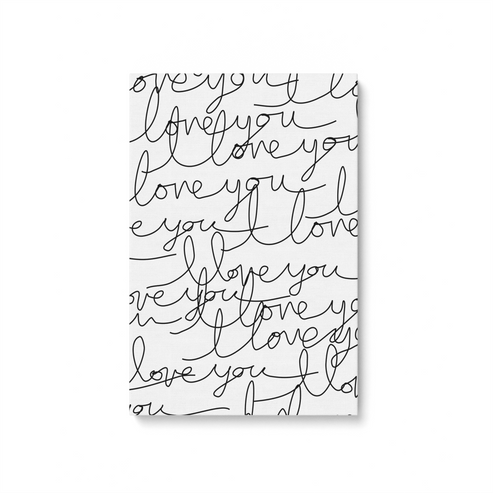 ove you I lo
I love you
I love you
I love you
e you I love
I love you
ove you I love yo
u I love you
I love you I lo
you I